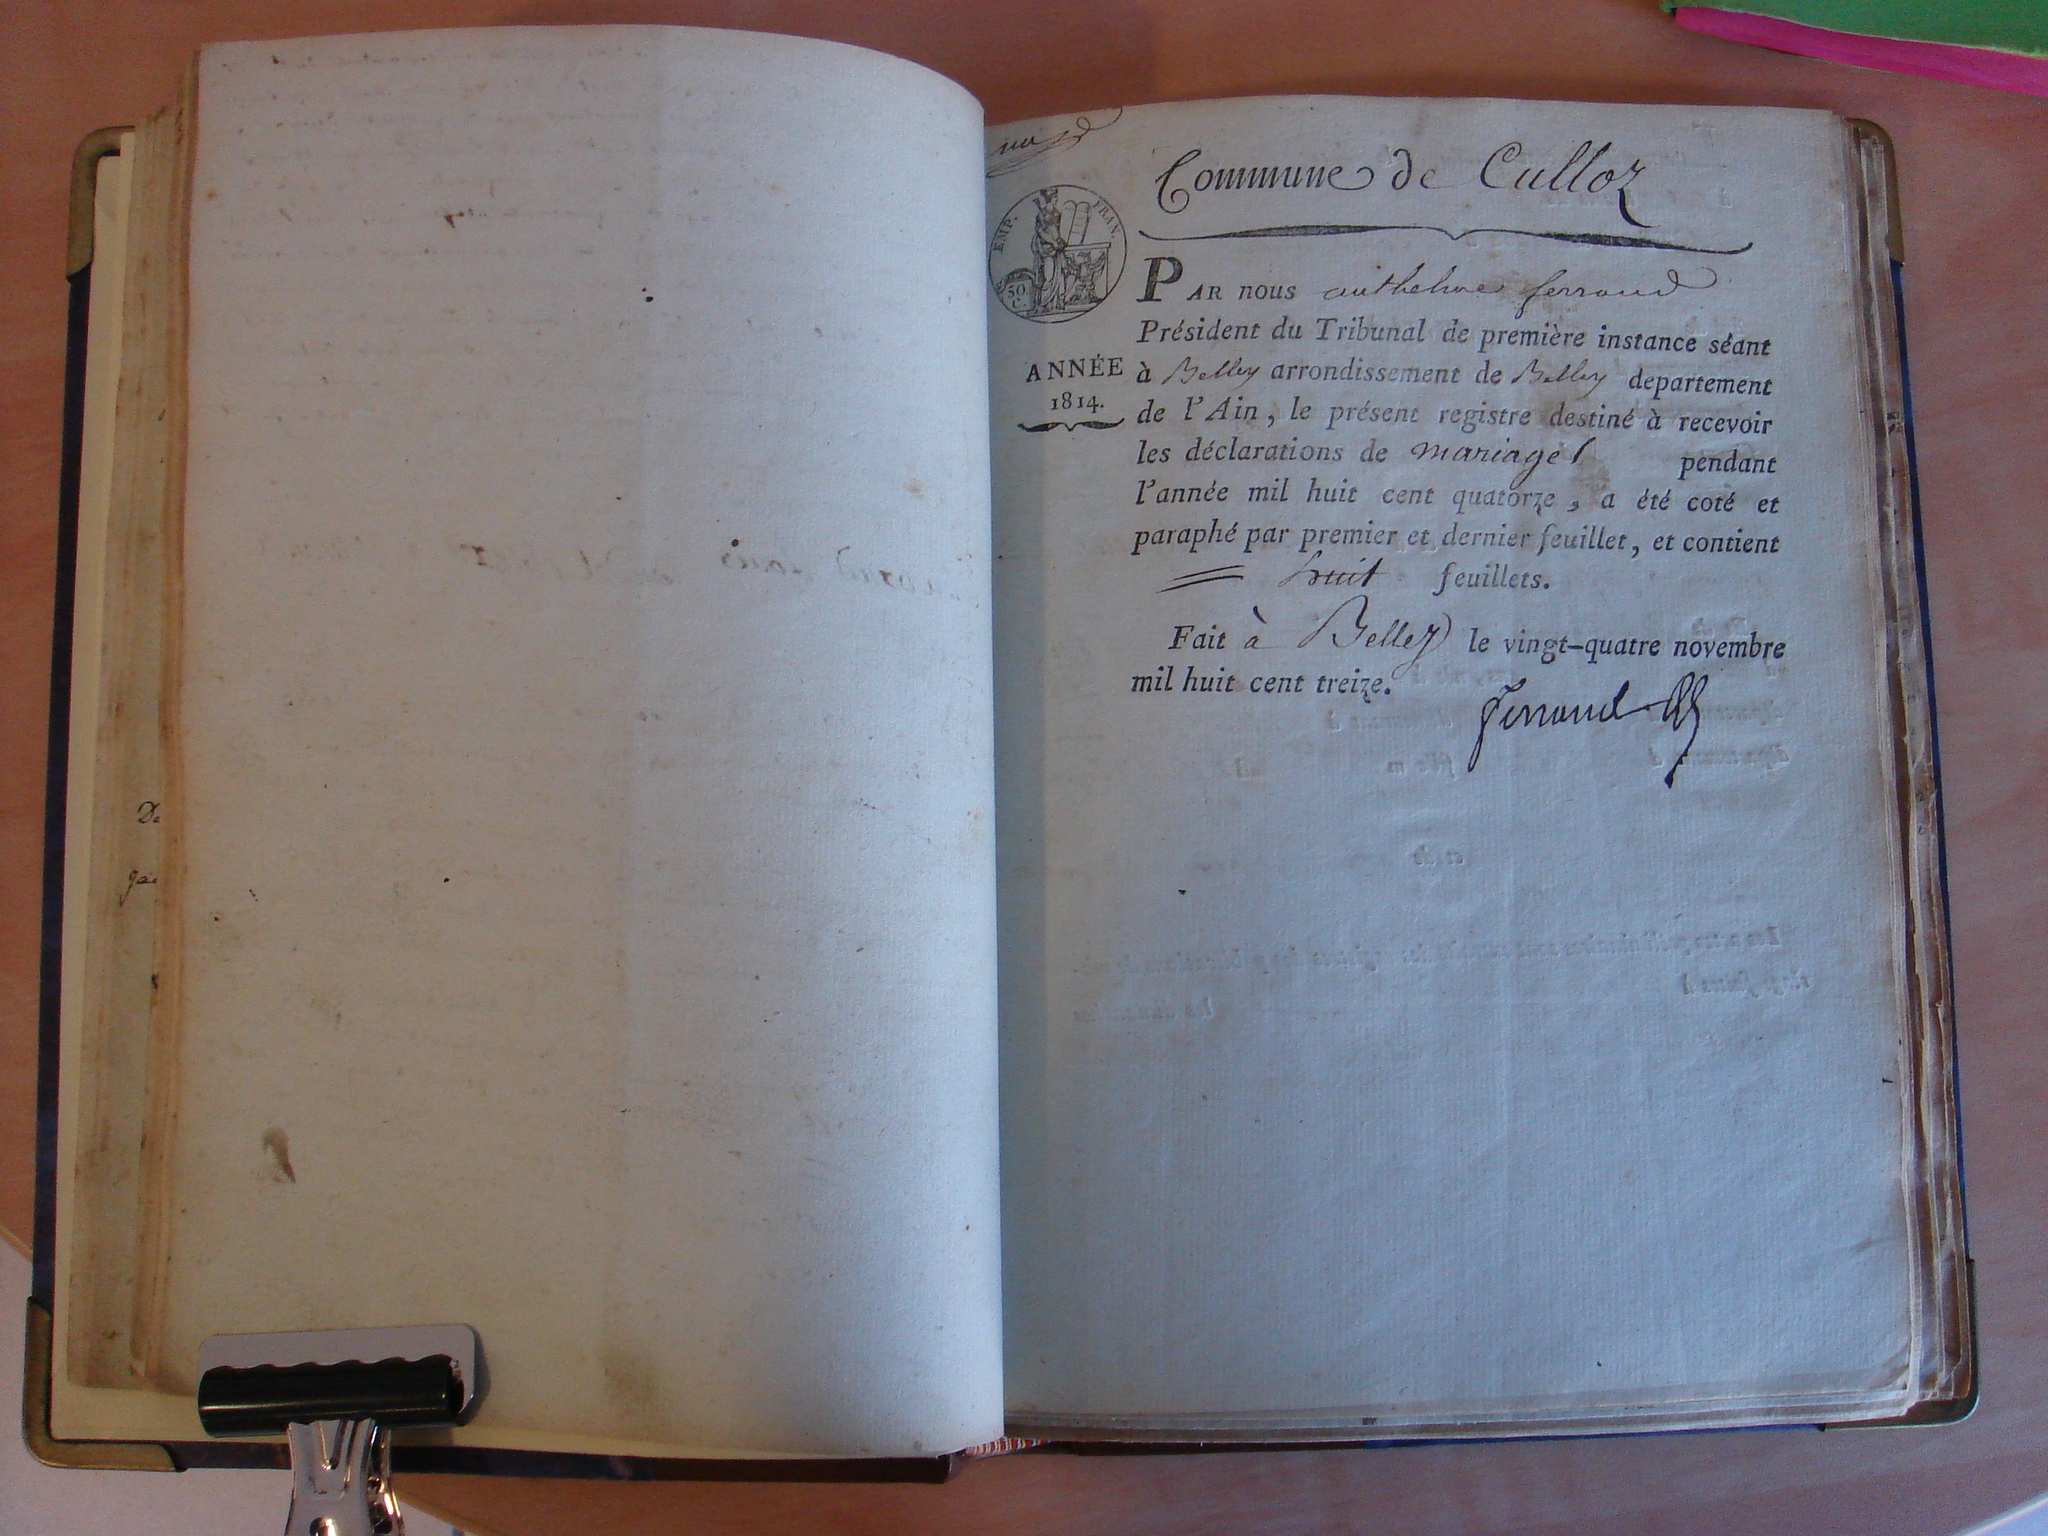 Commune de Culloz
EMP. FRAN.
50
C.
PAR nous anthelme ferrand
Président du Tribunal de première instance séant
ANNÉE
1814.
à Belley arrondissement de Belley departement
de l'Ain, le présent registre destiné à recevoir
les déclarations de mariages pendant
l'année mil huit cent quatorze, a été coté et
paraphé par premier et dernier feuillet, et contient
huit feuillets.
Fait à Belley le vingt-quatre novembre
mil huit cent treize.
ferrand